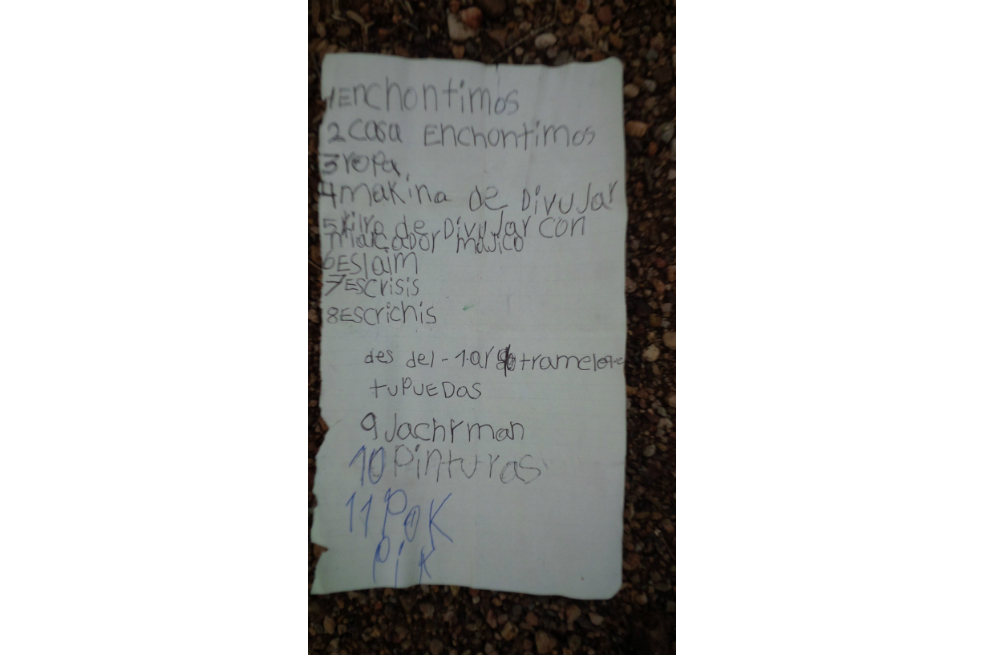 1Enchontimos
2casa Enchontimos
3ropa
4makina de Divujar
5 de Divujar con
marcador majico
6Eslaim
7Escrisis
8Escrichis
des del-1.ar
tuPUEDas
9Jachrman
10Pinturas
11POK
Pik